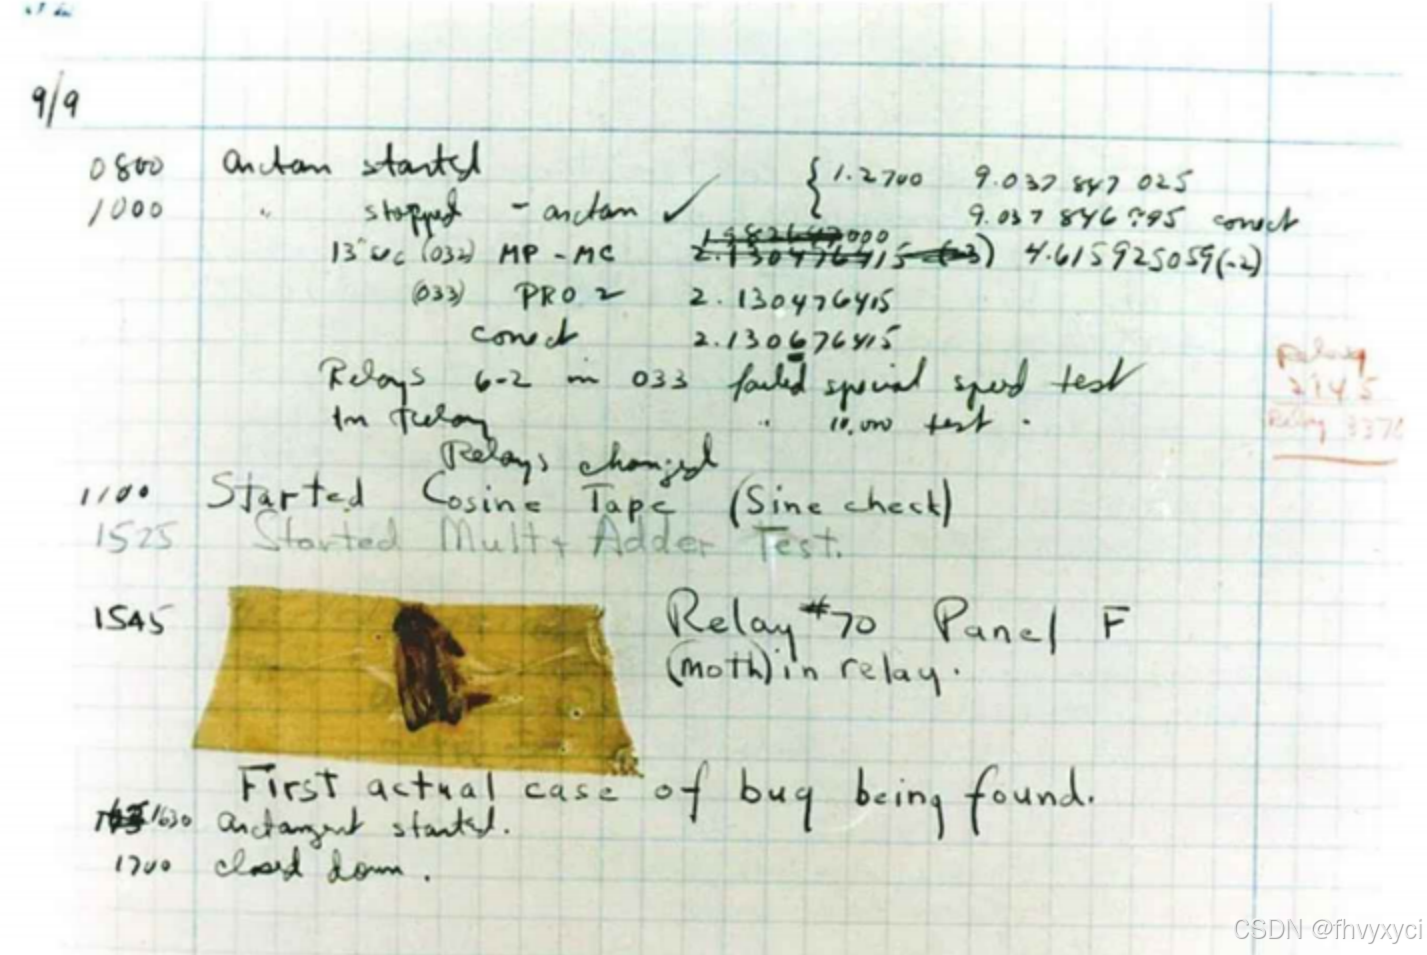 9/9
0800 arctan started { 1.2700 9.037 847 025
1000 " stopped - arctan ✓ 9.037 846 795 correct
13" sec (032) MP - MC 2.130476415 (-3) 4.615925059(-2)
(033) PRO 2 2.130476415
correct 2.130676415
Relays 6-2 in 033 failed special speed test
In Relay " 10,000 test .
Relays changed
Relay
2145
Relay 337
1100 Started Cosine Tape (Sine check)
1525 Started Mult + Adder Test.
1545 Relay #70 Panel F
(moth) in relay.
First actual case of bug being found.
1630 arctangent started.
1700 closed down.
CSDN @fhvyxyci